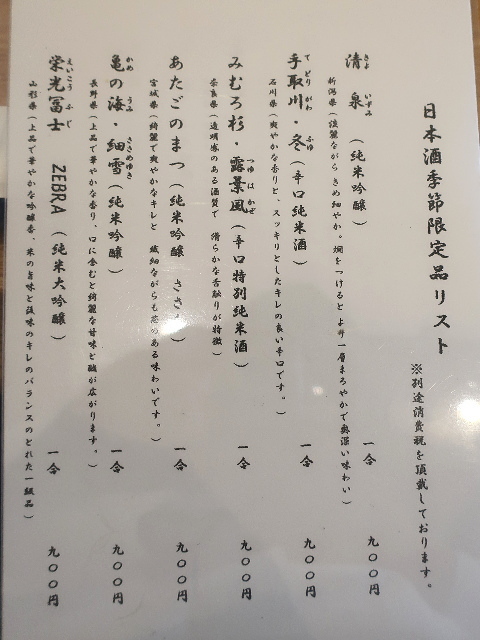 日本酒季節限定品リスト
※別途消費税を頂戴しております。
清泉（純米吟醸） 一合 九〇〇円
きよ いずみ
新潟県（淡麗ながらきめ細やか。燗をつけるとより一層まろやかで奥深い味わい）
手取川・冬（辛口純米酒） 一合 九〇〇円
てどりがわ ふゆ
石川県（爽やかな香りと、スッキリとしたキレの良い辛口です。）
みむろ杉・露葉風（辛口特別純米酒） 一合 九〇〇円
つゆはかぜ
奈良県（透明感のある酒質で 滑らかな舌触りが特徴）
あたごのまつ（純米吟醸 ささ 一合 九〇〇円
宮城県（綺麗で爽やかなキレと 繊細ながらも芯のある味わいです。）
亀の海・細雪（純米吟醸） 一合 九〇〇円
かめ うみ ささめゆき
長野県（上品で華やかな香り、口に含むと綺麗な甘味と酸が広がります。）
栄光冨士 ZEBRA（純米大吟醸） 一合 九〇〇円
えいこうふじ
山形県（上品で華やかな吟醸香、米の旨味と後味のキレのバランスのとれた一級品）